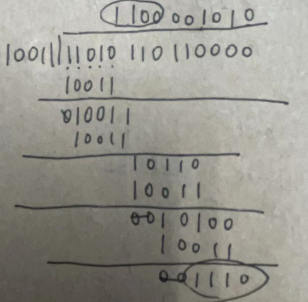 1100001010
10011 11010 110110000
10011
010011
10011
10110
10011
0010100
10011
001110